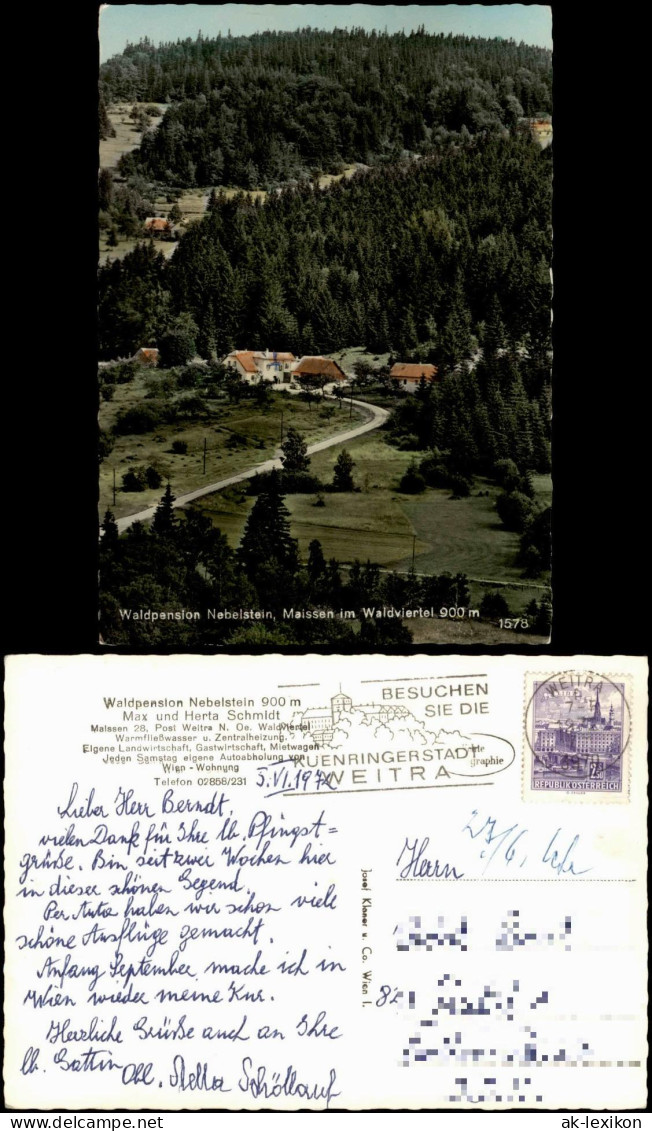 Waldpension Nebelstein, Maissen im Waldviertel 900 m
1578
Waldpension Nebelstein 900 m
Max und Herta Schmidt
Maissen 28, Post Weitra N. Oe. Waldviertel
Warmfließwasser u. Zentralheizung.
Eigene Landwirtschaft, Gastwirtschaft, Mietwagen
Jeden Samstag eigene Autoabholung von
Wien - Wohnung
Telefon 02856/231
BESUCHEN
SIE DIE
KUENRINGERSTADT
WEITRA
WEITRA
REPUBLIK ÖSTERREICH
Lieber Herr Berndt,
vielen Dank für Ihre lb. Pfingst=
grüße. Bin seit zwei Wochen hier
in dieser schönen Gegend.
Per Auto haben wir schon viele
schöne Ausflüge gemacht.
Anfang September mache ich in
Wien wieder meine Kur.
Herzliche Grüße auch an Ihre
lb. Gattin
Stella Schöllauf
Herrn
82
Josef Klaner u. Co. Wien I.
ak-ansichtskarten.de
ak-lexikon